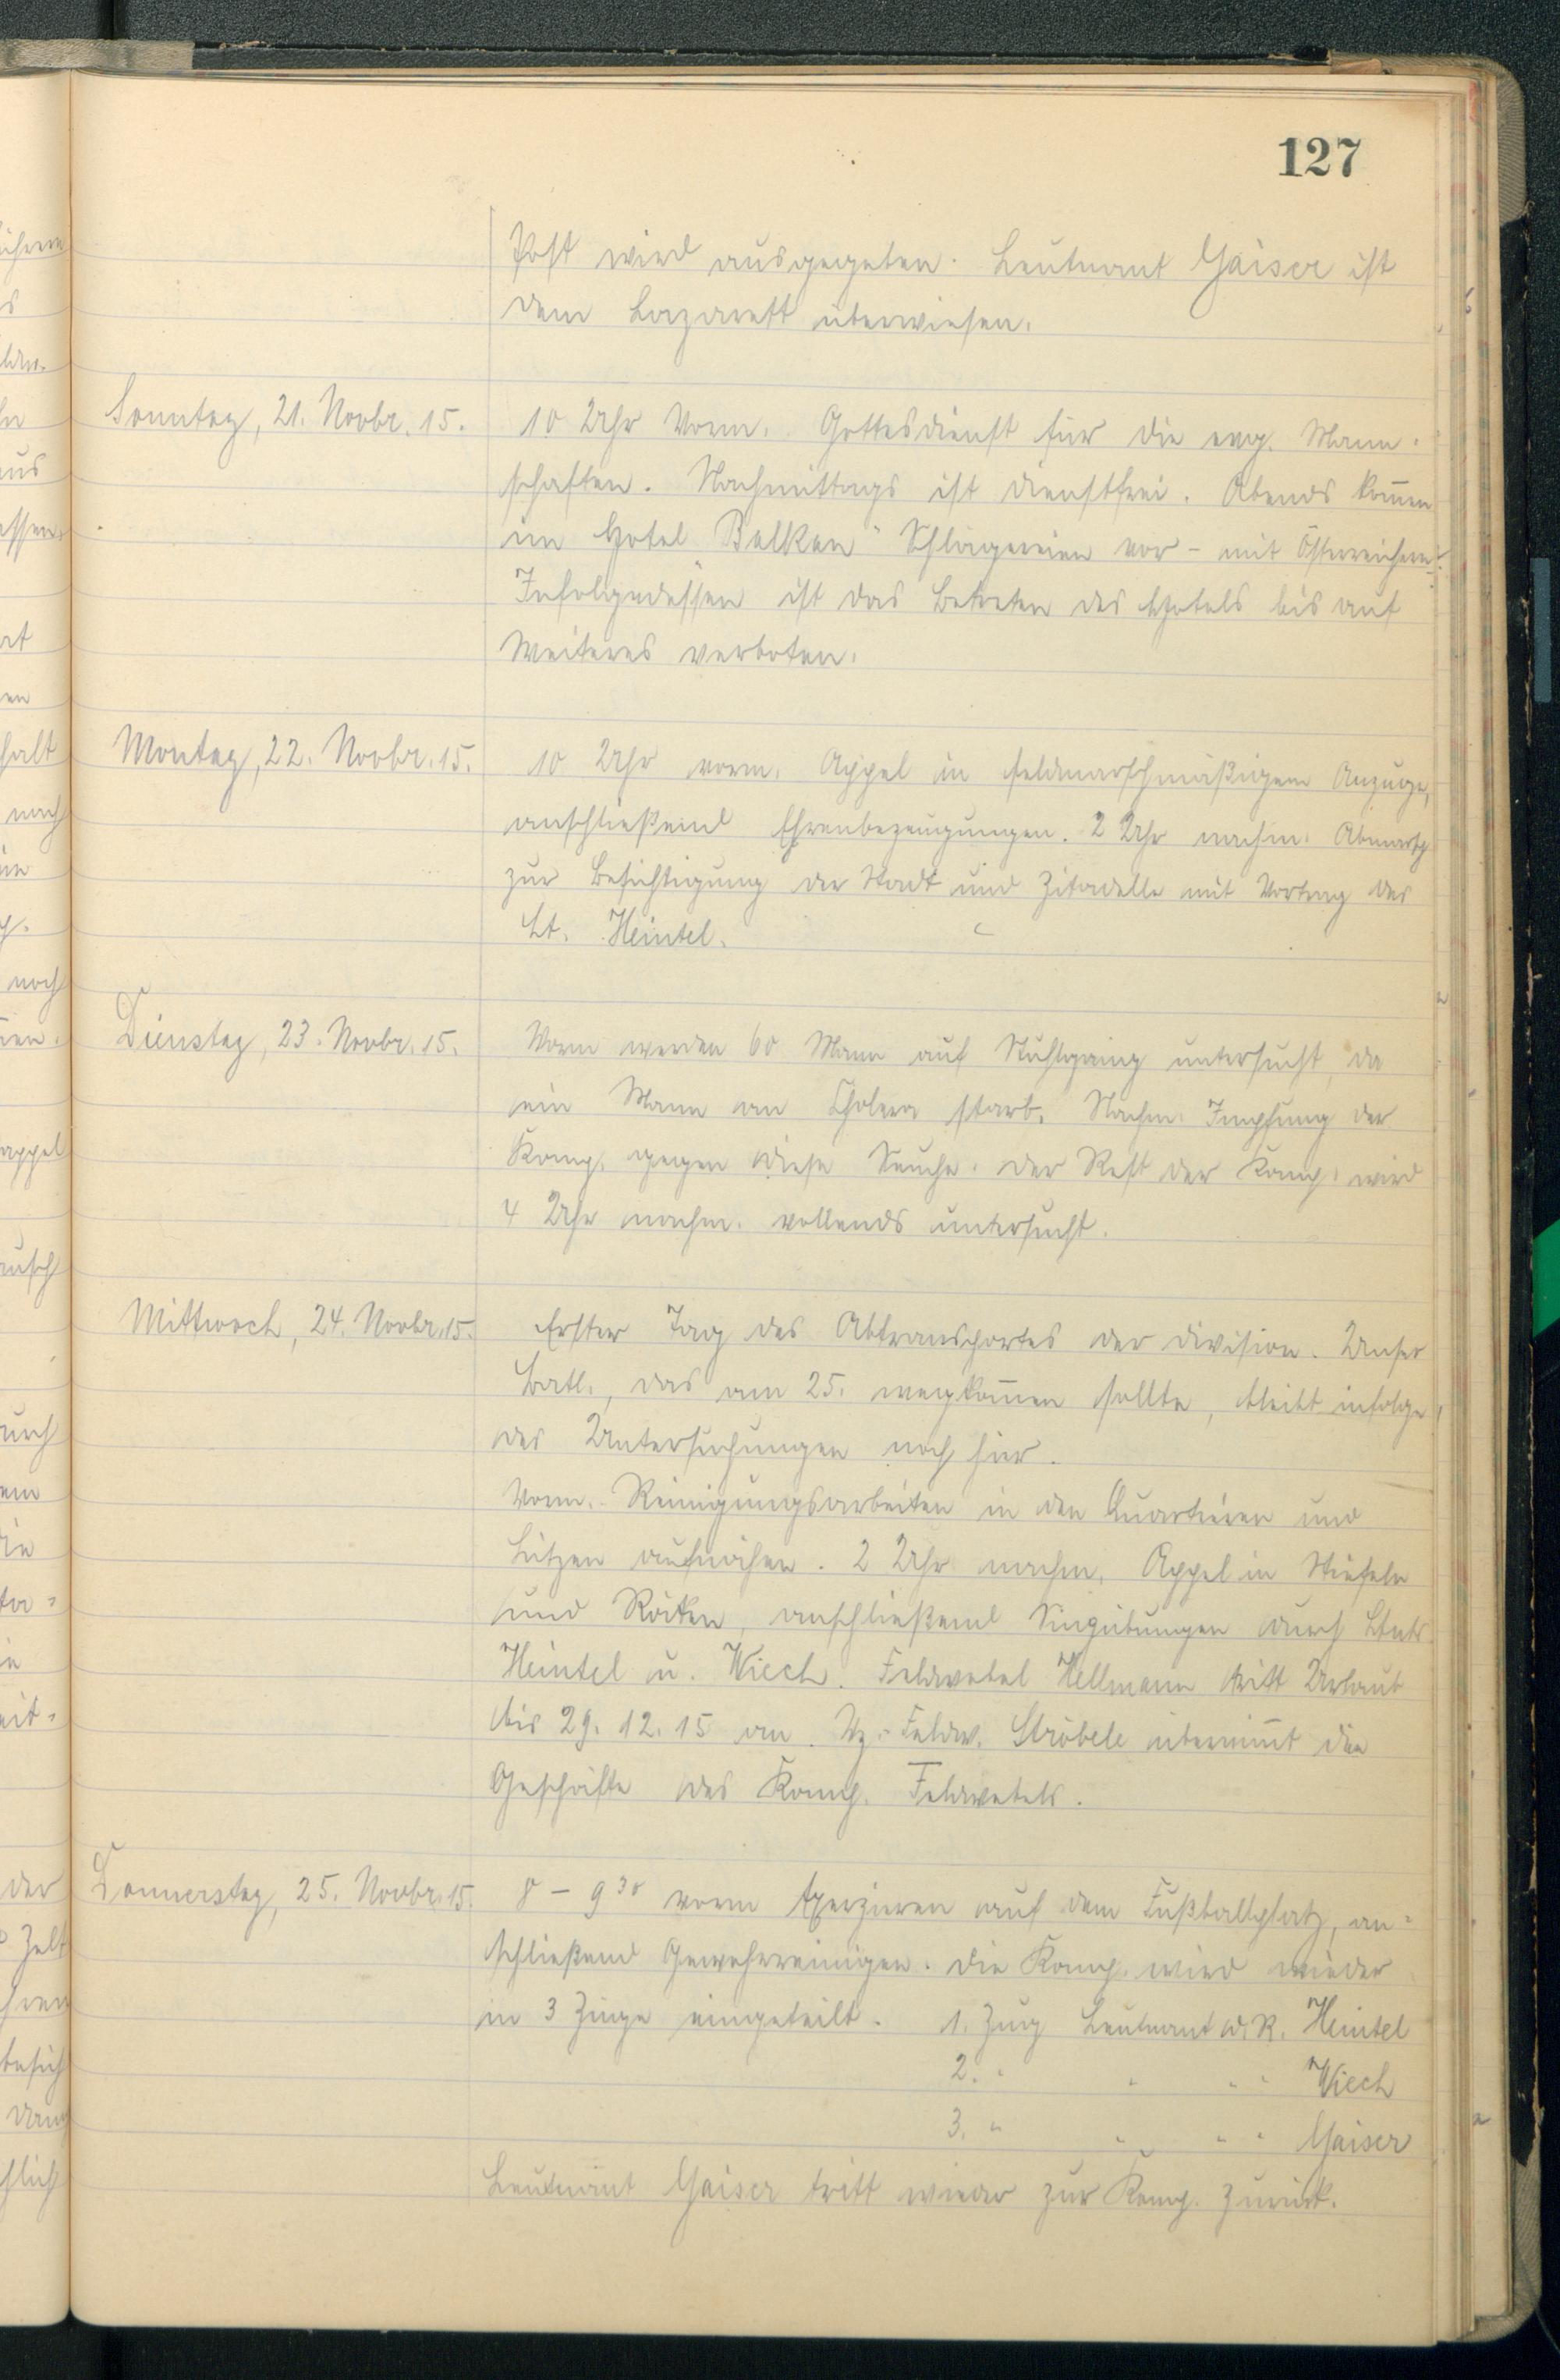 127
Post wird ausgegeben. Leutnant Gaiser ist
dem Lazarett überwiesen.
Sonntag, 21. Novbr. 15.
10 Uhr Vorm. Gottesdienst für die evg. Mann-
schaften. Nachmittags ist dienstfrei. Abends kom̅en
im Hotel Balkan" Schlägereien vor - mit Österreichern.
Infolgedessen ist das Betreten des Hotels bis auf
Weiteres verboten.
Montag, 22. Novbr. 15.
10 Uhr vorm. Appel in feldmarschmäßigem Anzuge,
anschließend Ehrenbezeugungen. 2 Uhr nachm. Abmarsch
zur Besichtigung der Stadt und Zitadelle mit Vortrag des
Lt. Heintel.
Dienstag, 23. Novbr. 15.
Vorm werden 60 Mann auf Stuhlgang untersucht, da
ein Mann an Cholera starb. Nachm. Impfung der
Komp. gegen diese Seuche. Der Rest der Komp. wird
4 Uhr nachm. vollends untersucht.
Mittwoch, 24. Novbr. 15.
Erster Tag des Abtransportes der Division. Unser
Batl., das am 25. wegkom̅en sollte, bleibt infolge
der Untersuchungen noch hier.
Vorm. Reinigungsarbeiten in den Quartieren und
Litzen aufnähen. 2 Uhr nachm. Appel in Stiefeln
und Röcken, anschließend Singübungen durch Ltnts.
Heintel u. Wiech. Feldwebel Hellmann tritt Urlaub
bis 29. 12. 15 an. Vz. Feldw. Ströbele übernim̅t die
Geschäfte des Komp. Feldwebels.
Donnerstag, 25. Novbr. 15.
8 - 9 30 vorm Exerzieren auf dem Fußballplatz, an-
schließend Gewehrreinigen. Die Komp. wird wieder
in 3 Züge eingeteilt. 1. Zug Leutnant d. R. Heintel
2. " " " " Wiech
3. " " " " Gaiser
Leutnant Gaiser tritt wieder zur Komp. zurück.